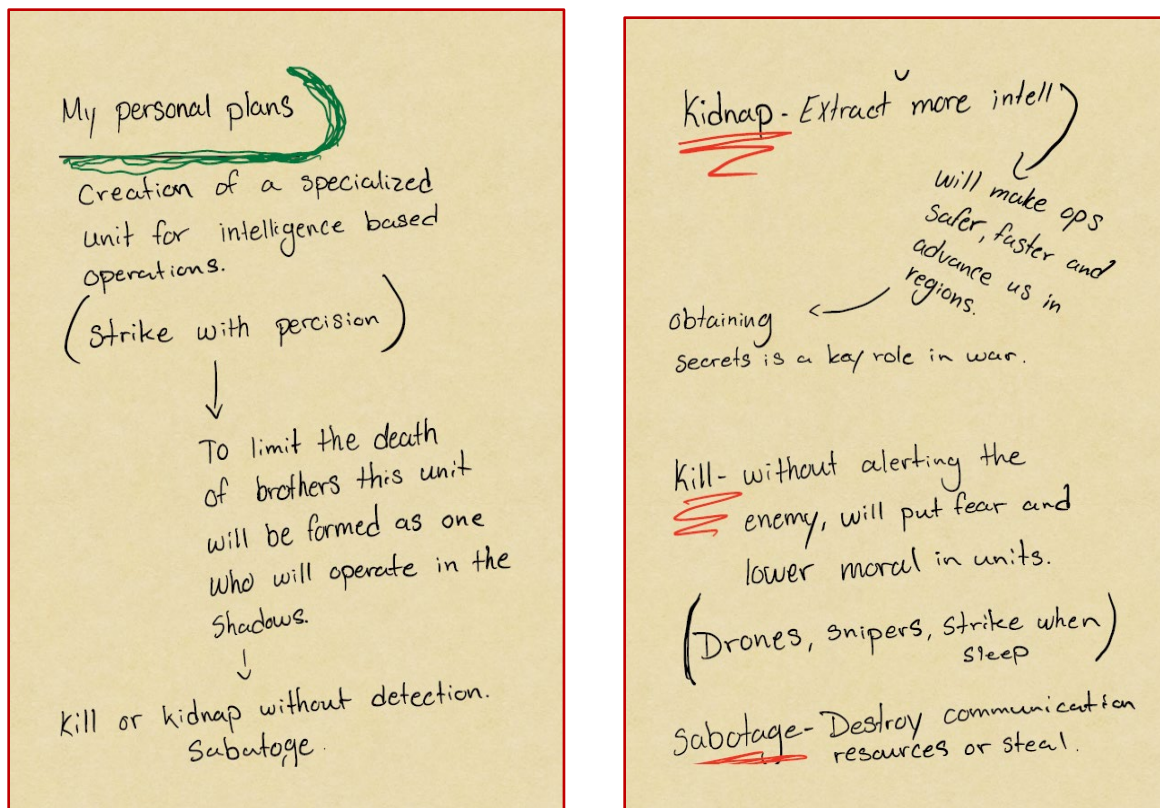 My personal plans
Creation of a specialized
unit for intelligence based
operations.
(Strike with percision)
To limit the death
of brothers this unit
will be formed as one
who will operate in the
shadows.
Kill or kidnap without detection.
Sabatoge.
Kidnap - Extract more intell
will make ops
safer, faster and
advance us in
regions.
obtaining
secrets is a key role in war.
Kill - without alerting the
enemy, will put fear and
lower moral in units.
(Drones, snipers, strike when
sleep)
Sabotage - Destroy communication
resources or steal.